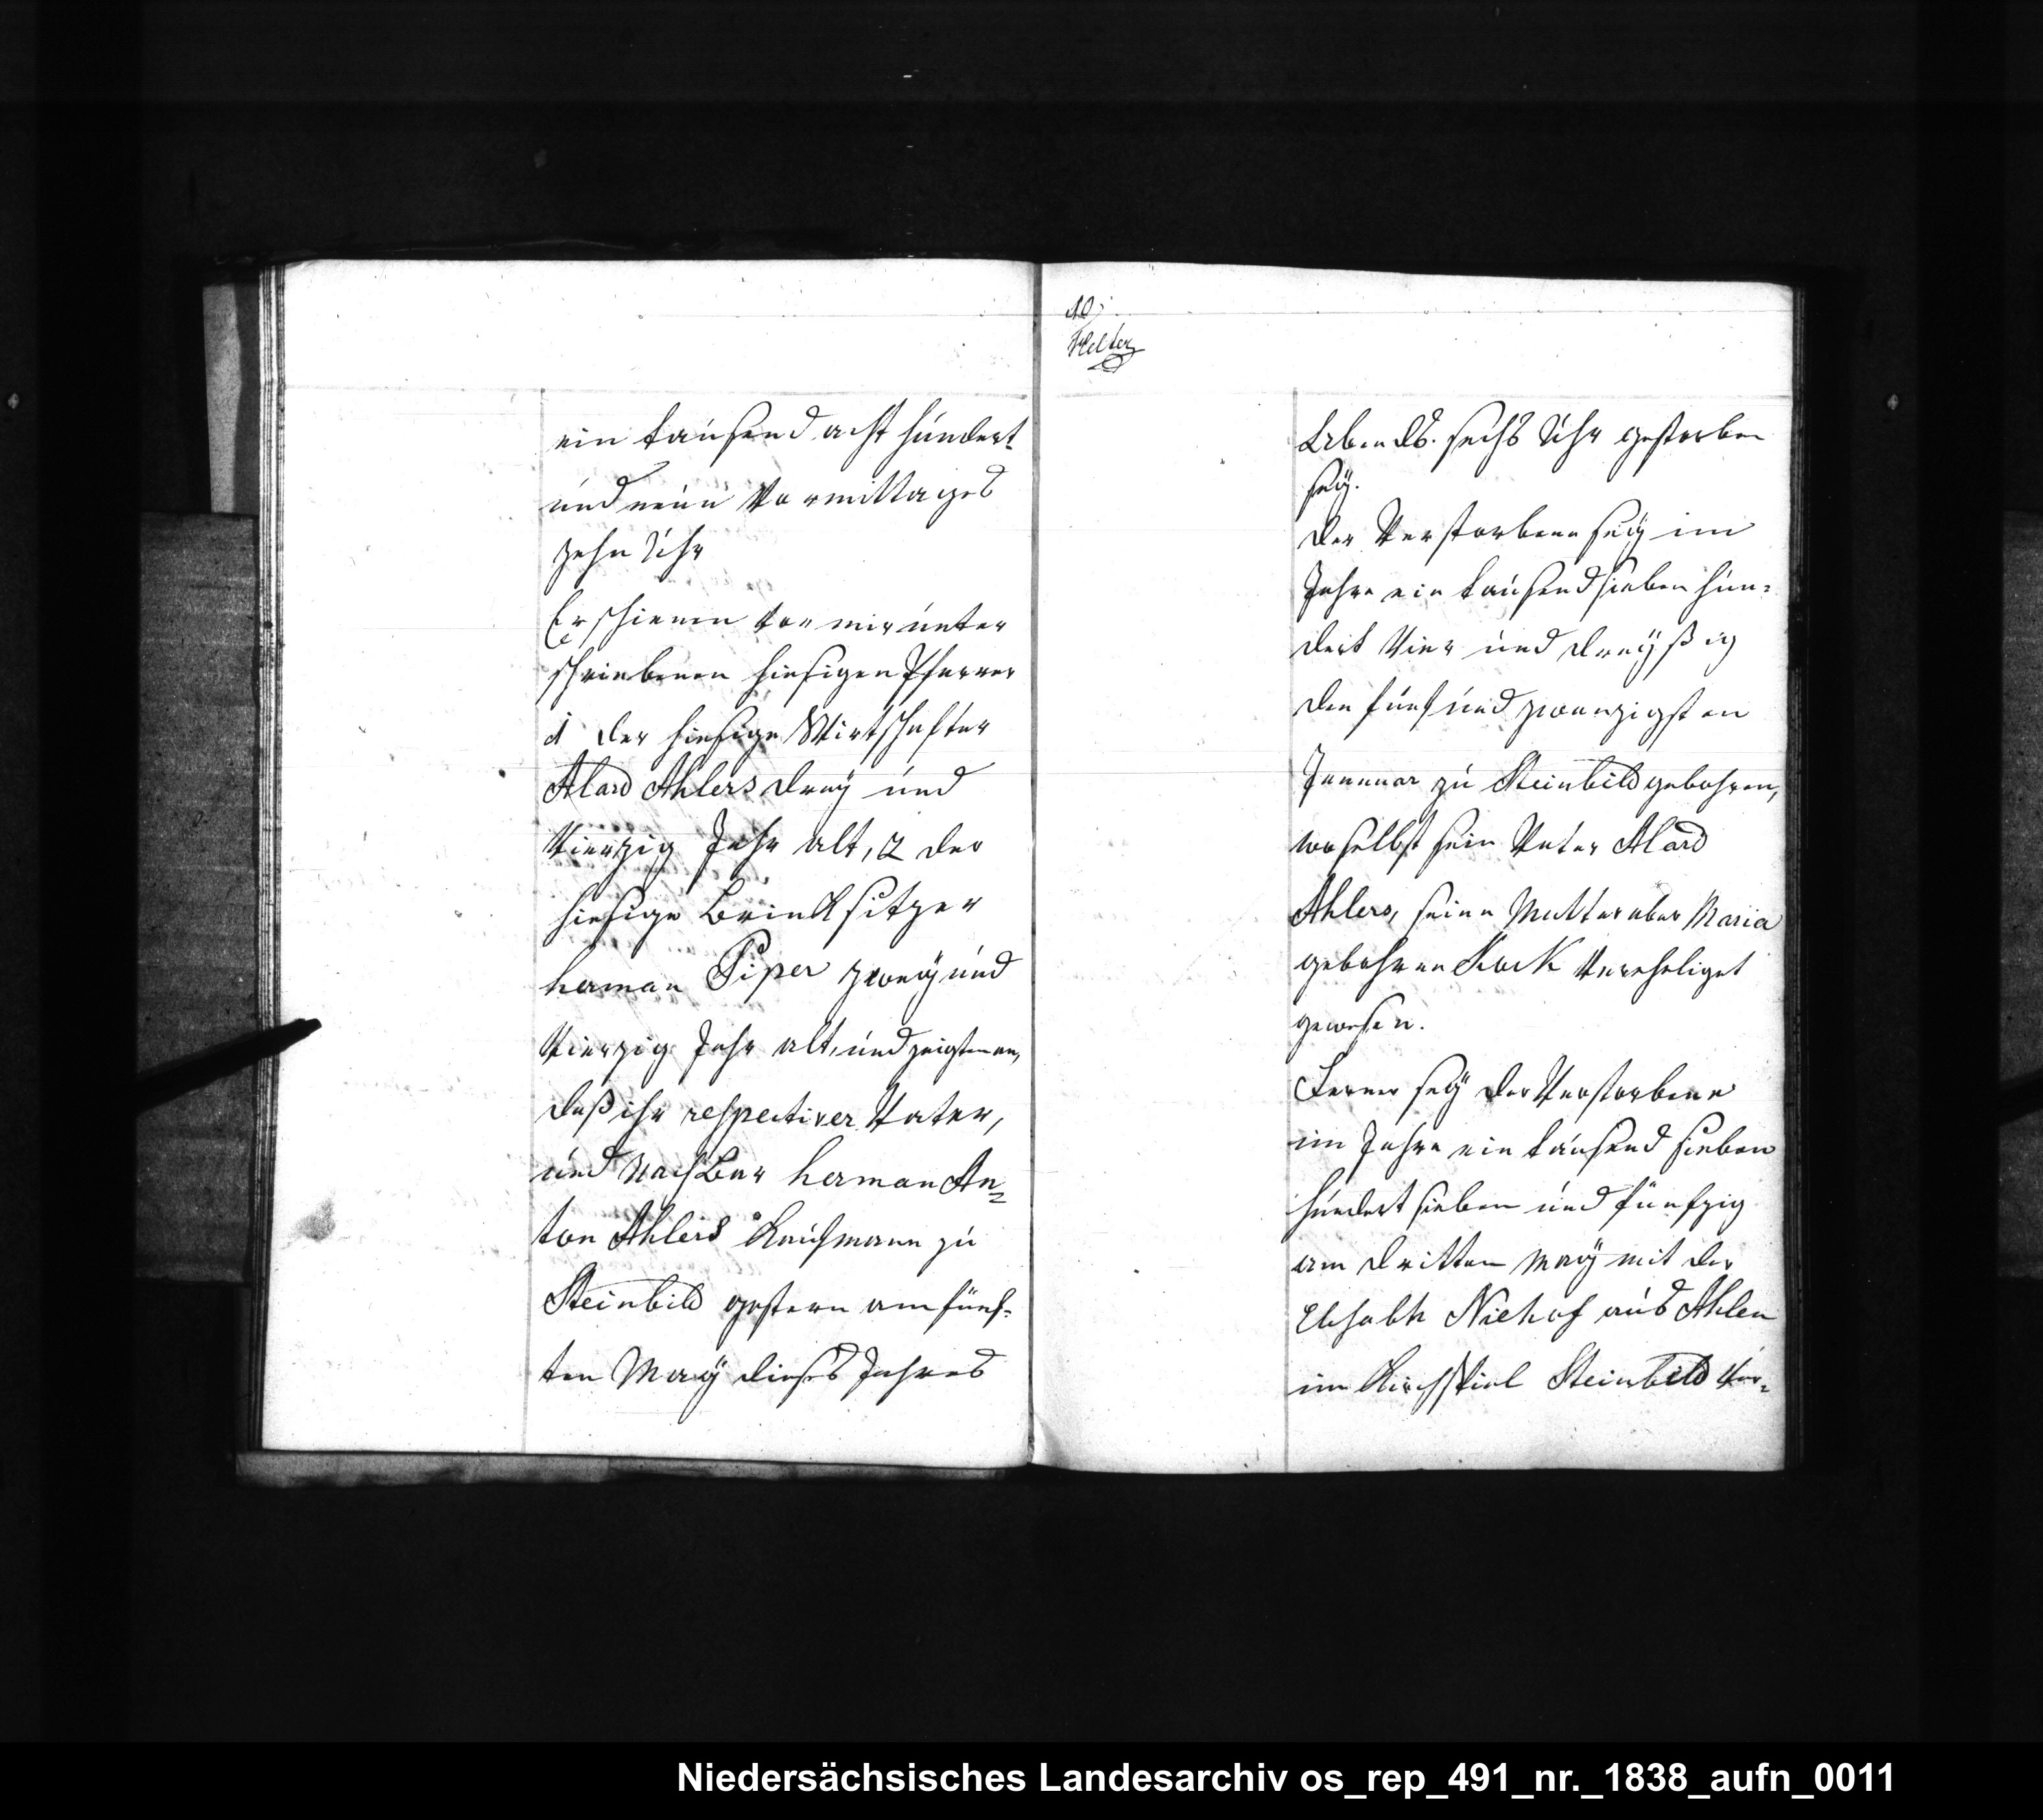 ein tausend acht hundert
und neun Vormittages
zehn Uhr
Erschienen vor mir unter
schriebenen hiesigen Pfarrer
1 der hiesige Wirtschafter
Alard Ahlers drey und
Vierzig Jahr alt, 2 der
hiesige Brinksitzer
herman Piper zwey und
Vierzig Jahr alt, und zeigten an,
daß ihr respectiver Vater,
und Nachbar herman An=
ton Ahlers Kaufmann zu
Steinbild gestern am fünf=
ten May dieses Jahres
10
Abends sechs Uhr gestorben
sey.
der Verstorbene sey im
Jahre ein tausend sieben hun=
dert Vier und dreyßig
den fünf und zwanzigsten
Januar zu Steinbild gebohren,
woselbst sein Vater Alard
Ahlers, seine Mutter aber Maria
gebohrne Kock Verehliget
gewesen.
Ferner sey der Verstorbene
im Jahre ein tausend sieben
hundert sieben und fünfzig
am dritten May mit der
Elisabth Niehof aus Ahlen
im Kirchspiel Steinbild Ver=
Niedersächsisches Landesarchiv os_rep_491_nr._1838_aufn_0011